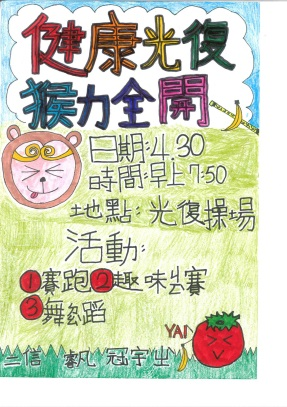 健康光復
猴力全開
日期:4.30
時間:早上7:50
地點:光復操場
活動:
①賽跑②趣味比賽
③舞蹈
YA!
二信 帆 冠宇